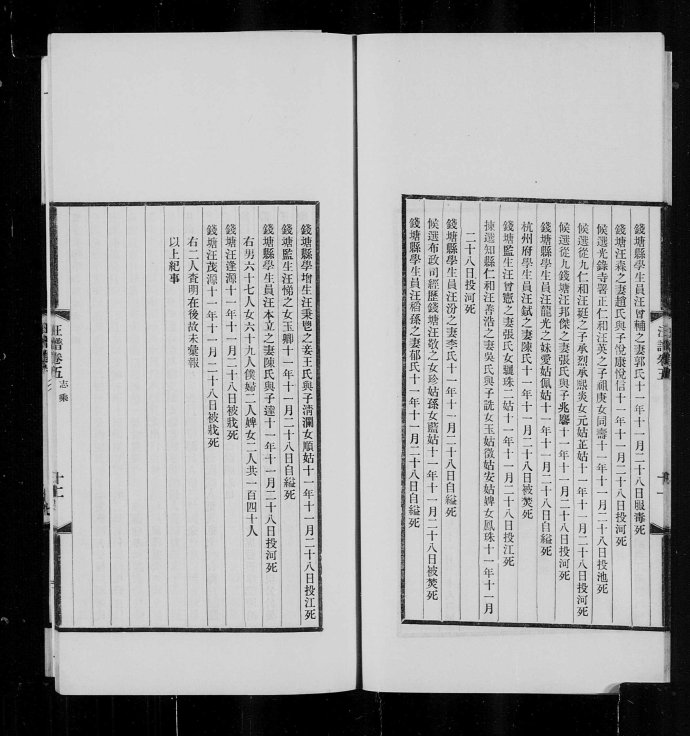 錢塘縣學生員汪曾輔之妻郭氏十一年十一月二十八日服毒死
錢塘汪森之妻趙氏與子悅康悅信十一年十一月二十八日投河死
候選光錄寺署正仁和汪英之子祖庚女同壽十一年十一月二十八日投池死
候選從九仁和汪珽之子承烈承熙炎女元姑芷姑十一年十一月二十八日投河死
候選從九錢塘汪邦傑之妻張氏與子兆鑾十一年十一月二十八日投河死
錢塘縣學生員汪龍光之妹愛姑佩姑十一年十一月二十八日自縊死
杭州府學生員汪鉽之妻陳氏十一年十一月二十八日被焚死
錢塘監生汪曾憲之妻張氏女驪珠二姑十一年十一月二十八日投江死
揀選知縣仁和汪善浩之妻吳氏與子詵女玉姑徵姑安姑婢女鳳珠十一年十一月
二十八日投河死
錢塘縣學生員汪汾之妻李氏十一年十一月二十八日自縊死
候選布政司經歷錢塘汪敬之女珍姑孫女藍姑十一年十一月二十八日被焚死
錢塘縣學生員汪稻孫之妻郁氏十一年十一月二十八日自縊死
錢塘縣學增生汪秉鬯之妾王氏與子清瀾女順姑十一年十一月二十八日投江死
錢塘監生汪悌之女玉卿十一年十一月二十八日自縊死
錢塘縣學生員汪本立之妻陳氏與子達十一年十一月二十八日投河死
右男六十七人女六十九人僕婦二人婢女二人共一百四十人
錢塘汪逢源十一年十一月二十八日被戕死
錢塘汪茂源十一年十一月二十八日被戕死
右二人查明在後故未彙報
以上紀事
汪譜卷五
志乘
十二